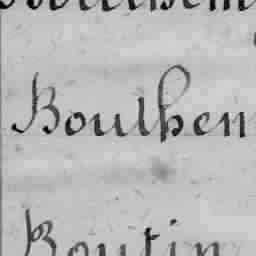 Boulhen
Boutin